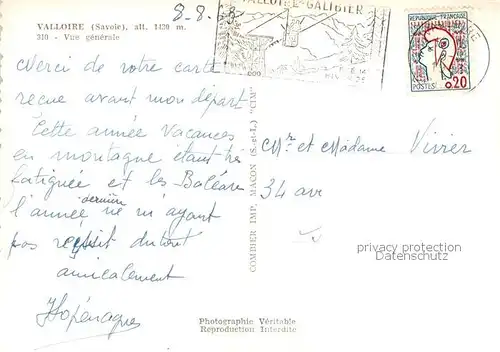 VALLOIRE (Savoie), alt. 1430 m.
310 - Vue générale
8-8-
VALLOIRE-GALIBIER
REPUBLIQUE FRANÇAISE
POSTES 0,20
Merci de votre carte
reçue avant mon départ
Cette année vacances
en montagne étant très
fatiguée et les Baléares
l'année dernière ne m'ayant
pas réussit du tout
amicalement
COMBIER IMP. MACON (S.-et-L.) "CIM"
Mr et Madame Vivier
34 av
privacy protection
Datenschutz
Photographie Véritable
Reproduction Interdite